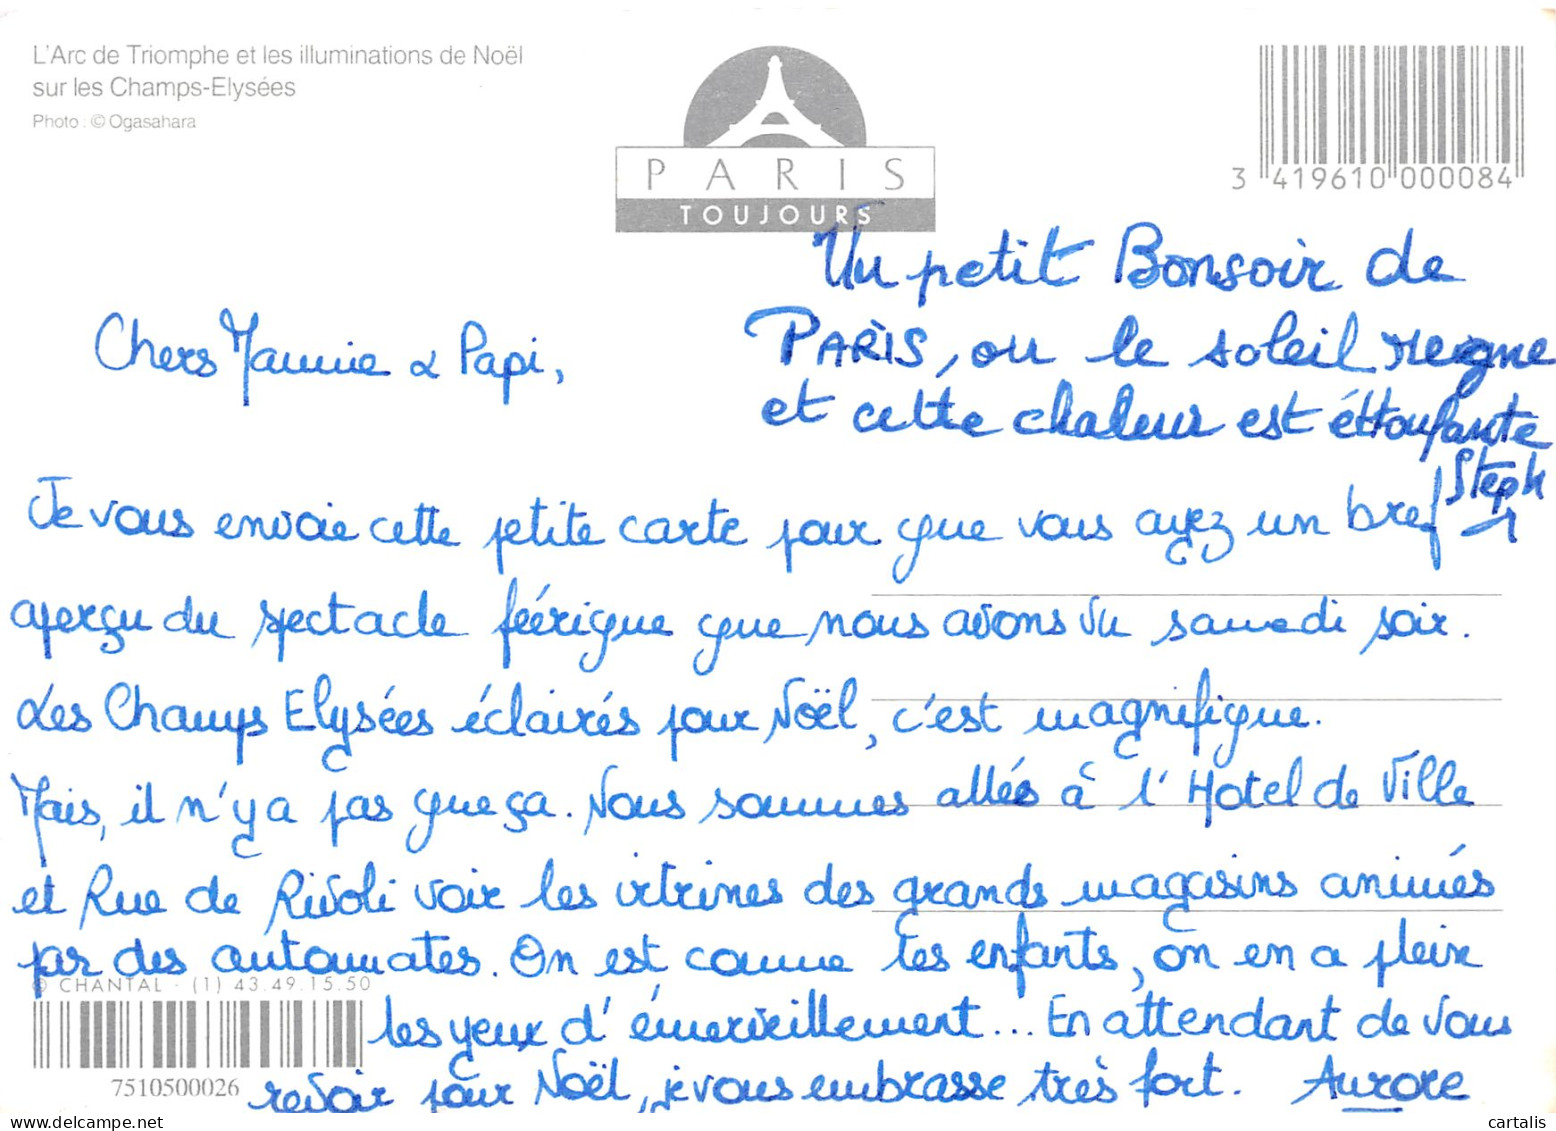 L'Arc de Triomphe et les illuminations de Noël
sur les Champs-Elysées
Photo : © Ogasahara
PARIS
TOUJOURS
3 419610 000084
Un petit Bonsoir de
PARIS, ou le soleil reigne
et cette chaleur est éttoufante
Steph
Chers Mamie & Papi,
Je vous envoie cette petite carte pour que vous ayez un bref
aperçu du spectacle féérique que nous avons vu samedi soir.
Les Champs Elysées éclairés pour Noël, c'est magnifique.
Mais, il n'y a pas que ça. Nous sommes allés à l'Hotel de Ville
et Rue de Rivoli voir les vitrines des grands magasins animés
par des automates. On est comme les enfants, on en a plein
© CHANTAL - (1) 43.49.15.50
les yeux d'émerveillement... En attendant de vous
7510500026
revoir pour Noël, je vous embrasse très fort. Aurore
www.delcampe.net
cartalis